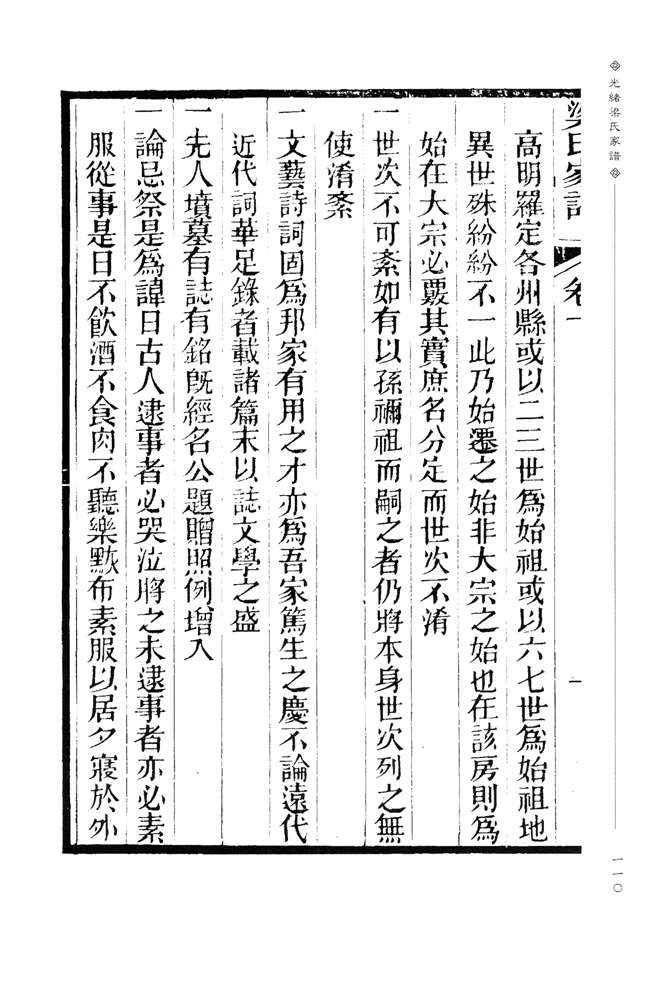 光緒梁氏家譜
一一〇
梁氏家譜 卷一 一
高明羅定各州縣或以二三世爲始祖或以六七世爲始祖地
異世殊紛紛不一此乃始遷之始非大宗之始也在該房則爲
始在大宗必覈其實庶名分定而世次不淆
一世次不可紊如有以孫禰祖而嗣之者仍將本身世次列之無
使淆紊
一文藝詩詞固爲邦家有用之才亦爲吾家篤生之慶不論遠代
近代詞華足錄者載諸篇末以誌文學之盛
一先人墳墓有誌有銘旣經名公題贈照例增入
一論忌祭是爲諱日古人逮事者必哭泣將之未逮事者亦必素
服從事是日不飮酒不食肉不聽樂黲布素服以居夕寢於外